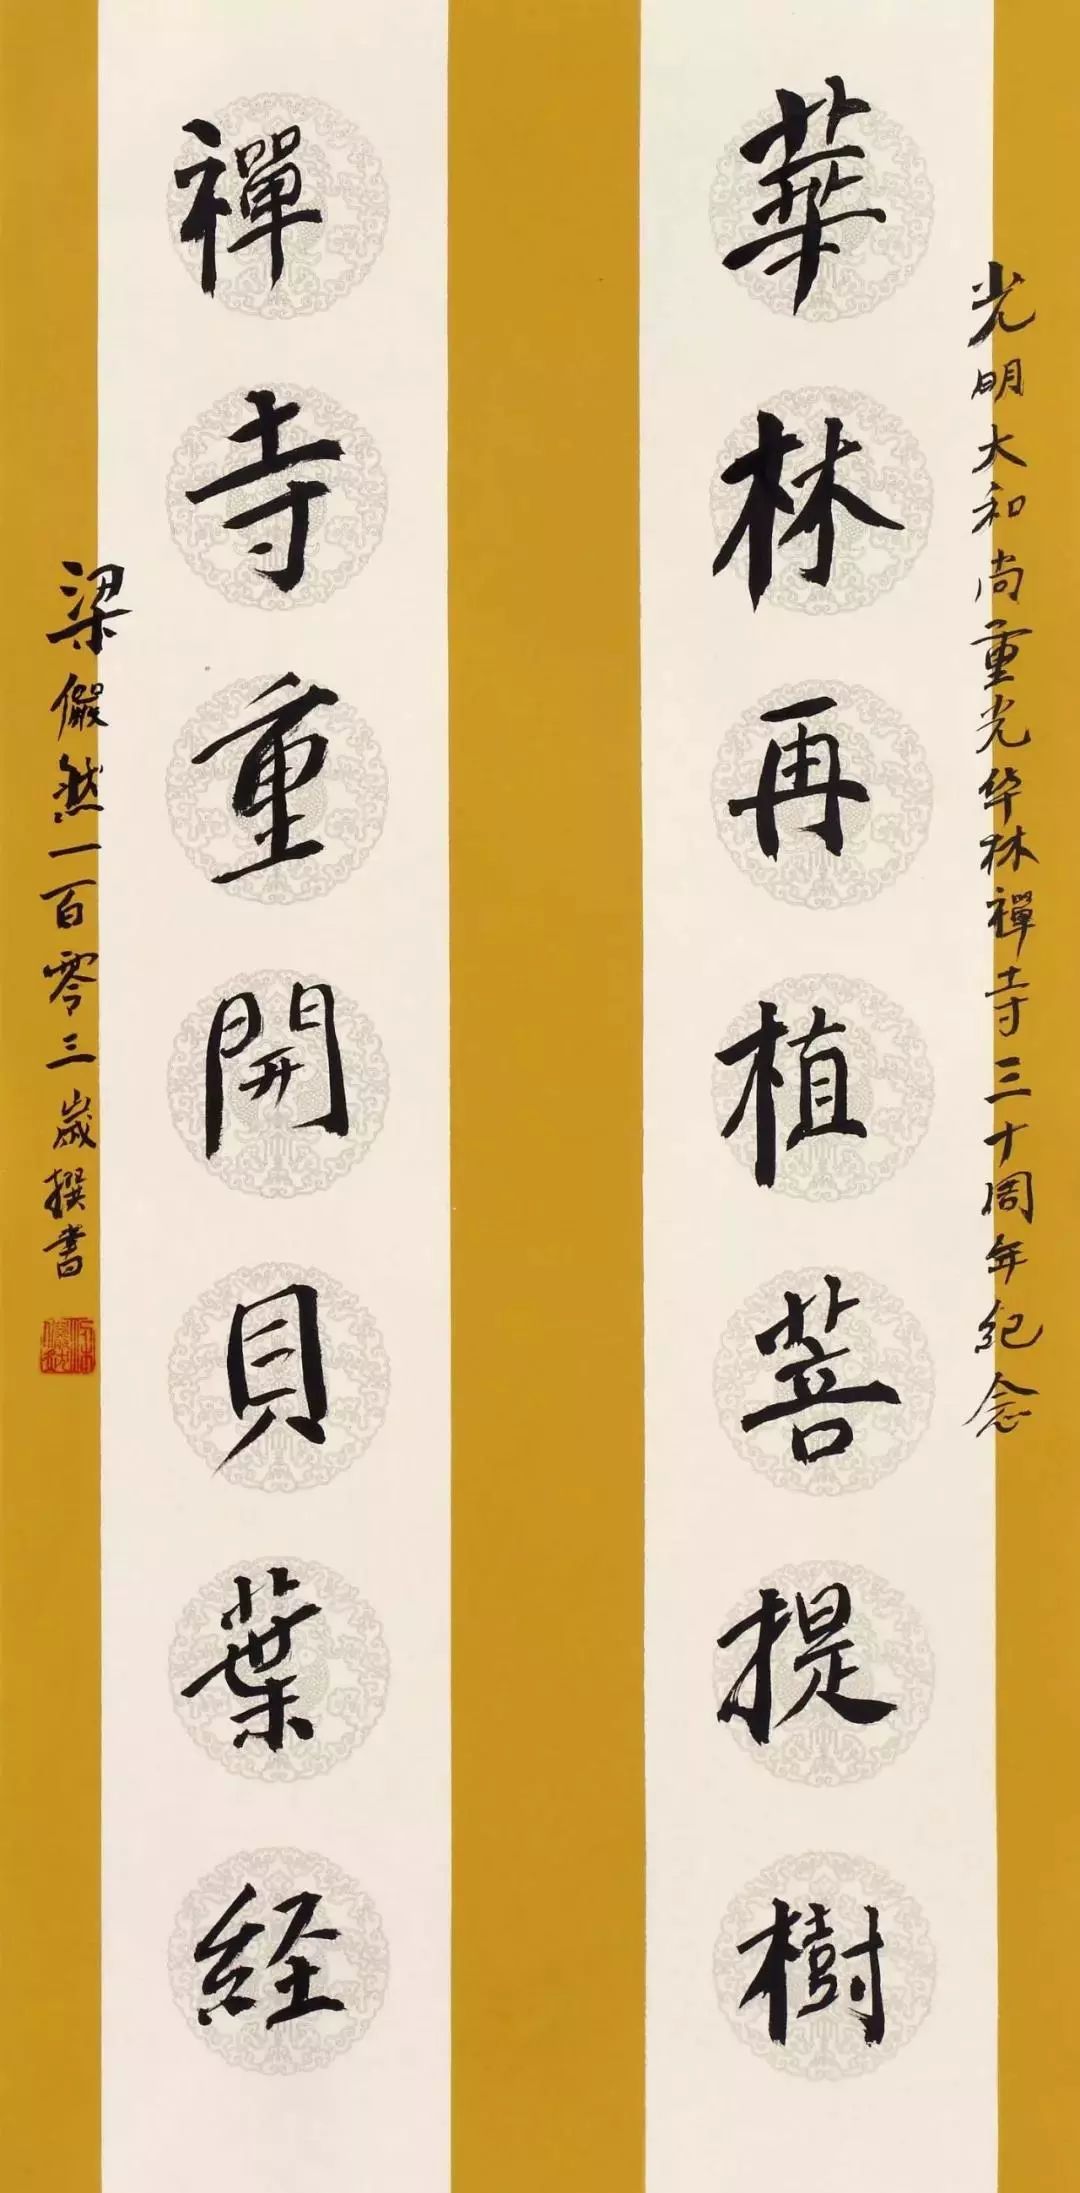 光明大和尚重光华林禅寺三十周年纪念
華林再植菩提樹
禪寺重開貝葉経
梁儼然一百零三嵗撰書